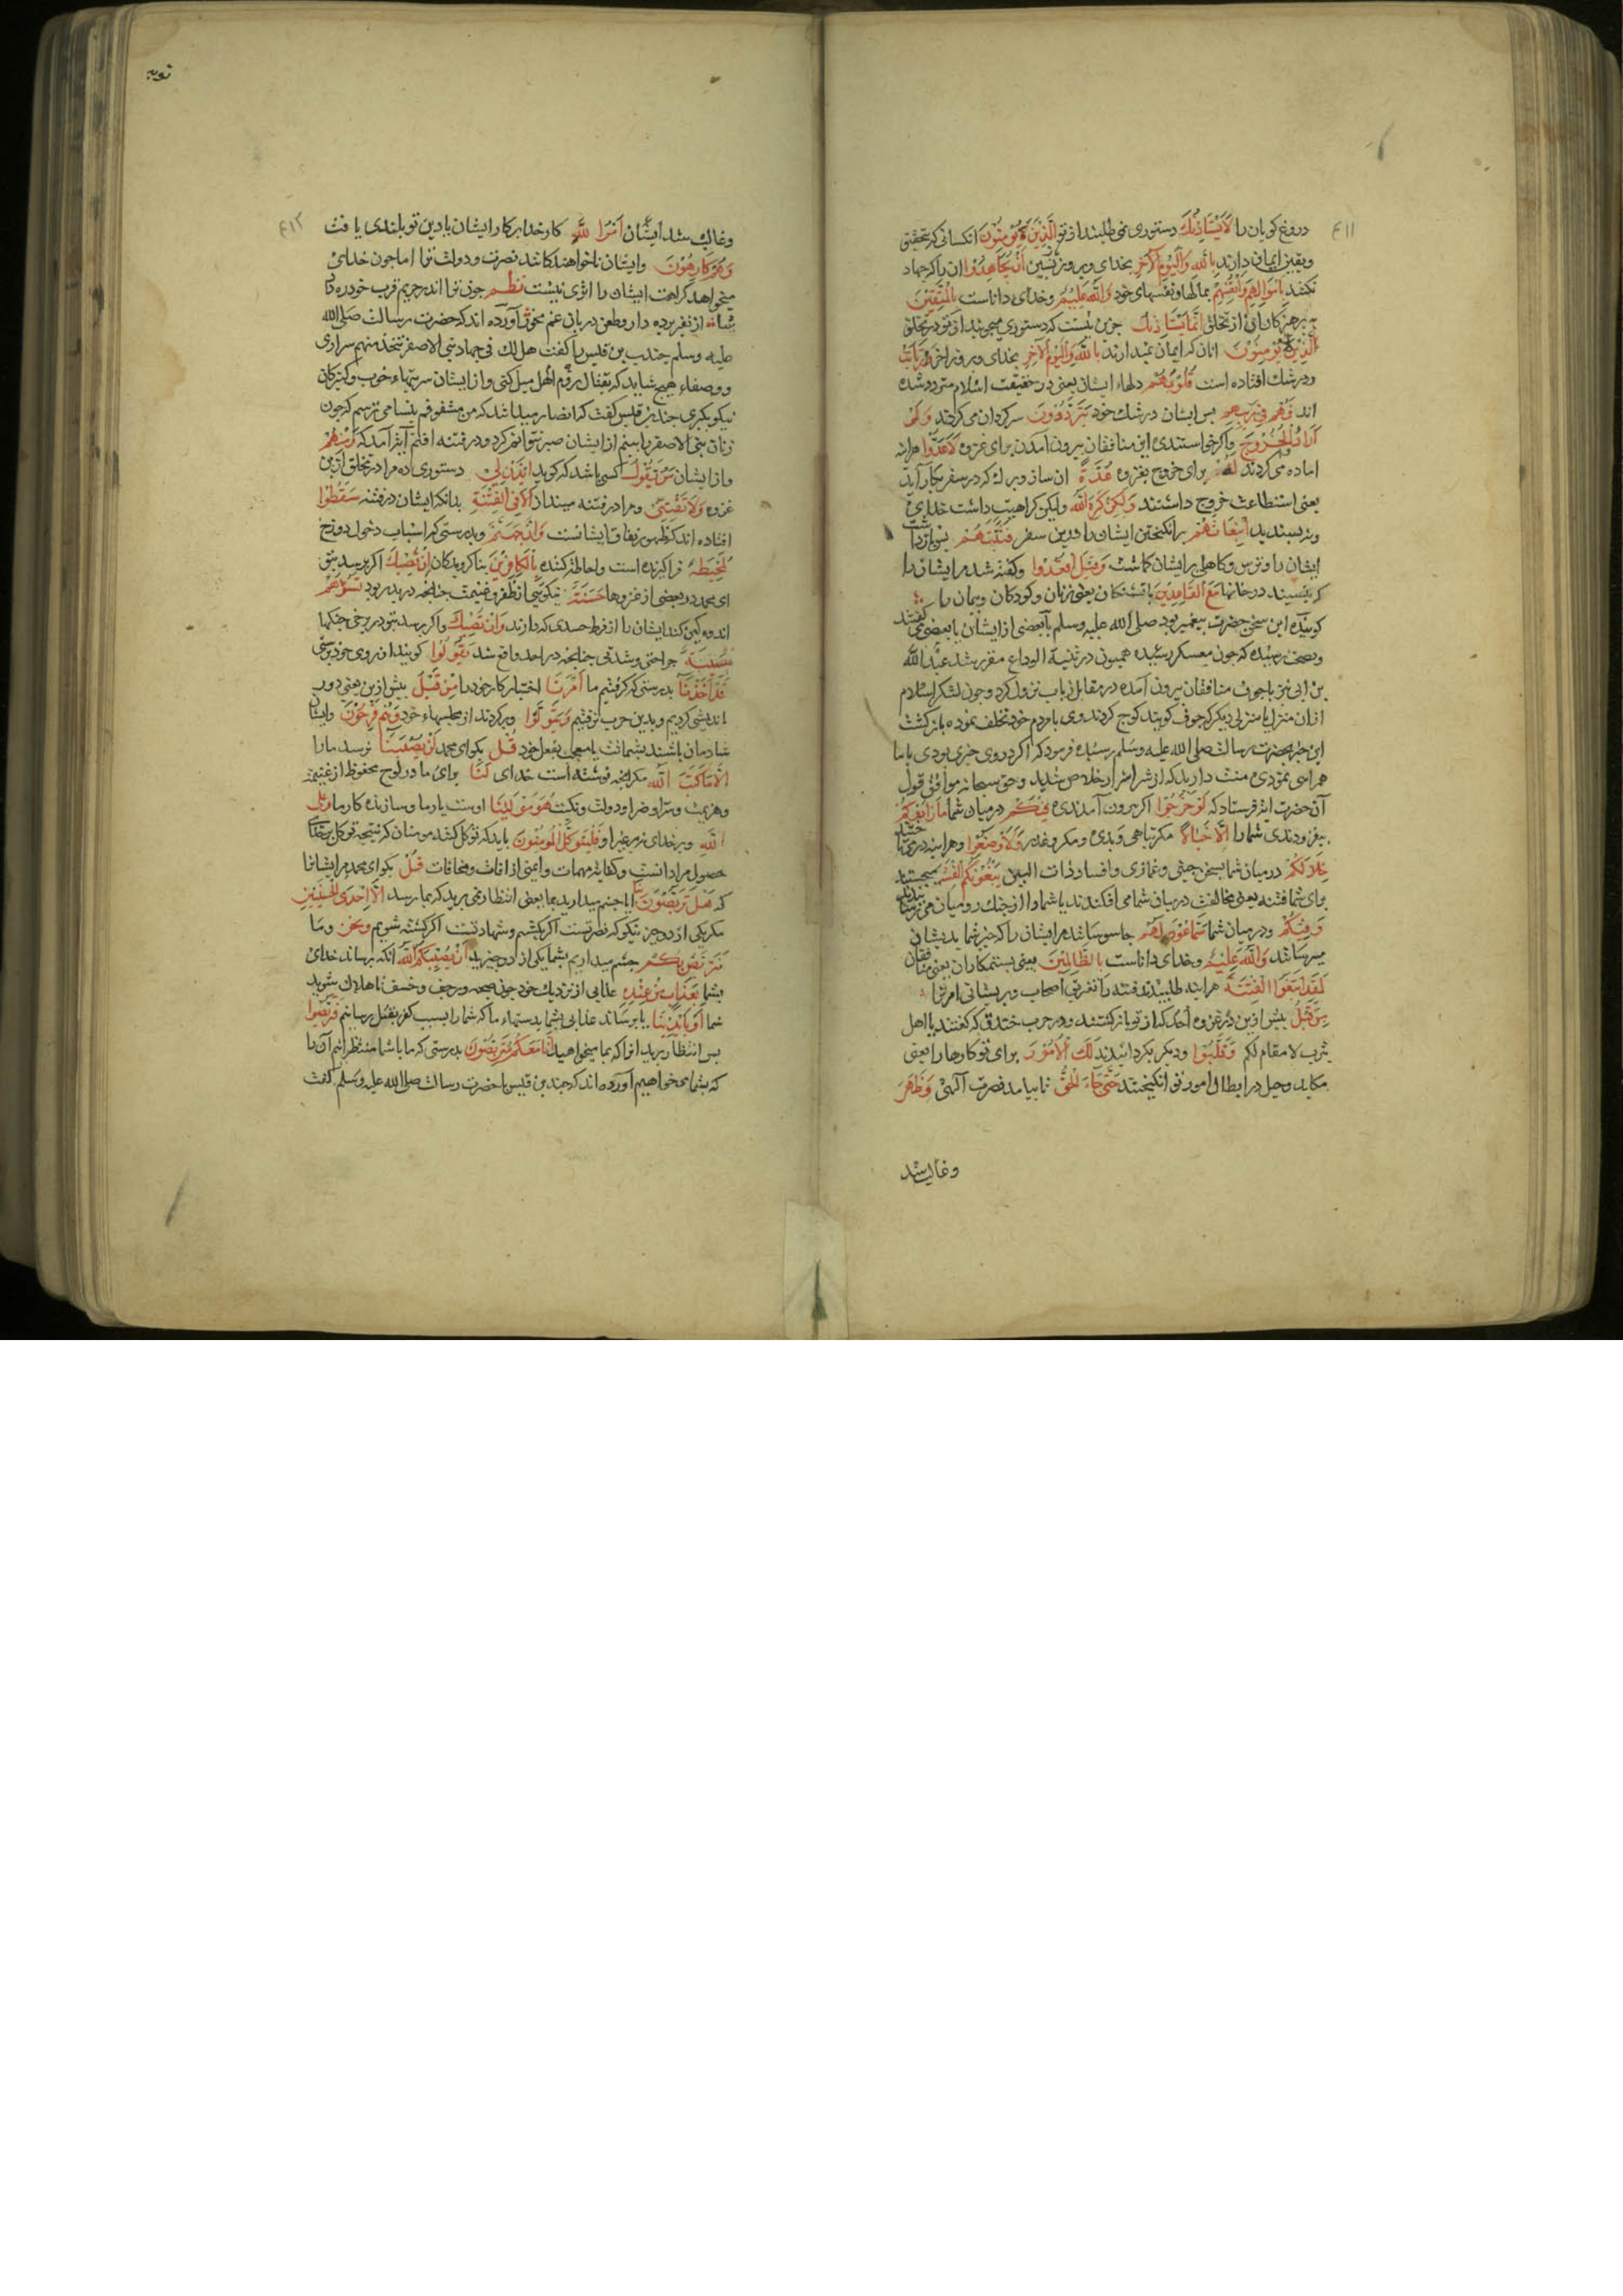 ٤١١
دروغ کویان را لَا یَسْتَأْذِنُكَ دستوری نمی طلبند از تو الَّذِینَ یُؤْمِنُونَ انکسانی که بتحقیق
ویقین ایمان دارند بِاللهِ وَالْیَوْمِ الْآخِرِ بخدای وبروز پسین اَنْ یُجَاهِدُوا ان را که جهاد
نکنند بِاَمْوَالِهِمْ وَاَنْفُسِهِمْ بمالها ونفسهای خود وَاللهُ عَلِیمٌ وخدای داناست بِالْمُتَّقِینَ
به پرهیزکاران از تخلف اِنَّمَا یَسْتَأْذِنُكَ جزین نیست که دستوری میجویند از تو در تخلف
الَّذِینَ لَا یُؤْمِنُونَ انان که ایمان نمیدارند بِاللهِ وَالْیَوْمِ الْآخِرِ بخدای وبروز اخر وَارْتَابَتْ
ودرشك افتاده است قُلُوبُهُمْ دلهاء ایشان یعنی در حقیقت اسلام متردد شده
اند فَهُمْ فِی رَیْبِهِمْ پس ایشان درشك خود یَتَرَدَّدُونَ سرکردان می کردند وَلَوْ
اَرَادُوا الْخُرُوجَ واکر خواستندی این منافقان بیرون آمدن برای غزوه لَاَعَدُّوا هراینه
اماده می کردند لَهُ برای خروج بغزوه عُدَّةً ان ساز وبرك که در سفر بکار آید
یعنی استطاعت خروج داشتند وَلٰکِنْ کَرِهَ اللهُ ولیکن کراهیت داشت خدای
ونه پسندید انْبِعَاثَهُمْ برانکیختن ایشان را درین سفر فَثَبَّطَهُمْ پس بازداشت
ایشان را وترس وکاهلی بر ایشان کماشت وَقِیلَ اقْعُدُوا وکفته شد مر ایشان را
که بنشینید در خانها مَعَ الْقَاعِدِینَ با نشستکان یعنی زنان وکودکان وبیماران
کوینده این سخن حضرت پیغمبر بود صلی الله علیه وسلم یا بعضی از ایشان با بعضی می کفتند
وبصحت رسیده که چون معسکر رسیده همیون در ثنیة الوداع مقرر شد عبد الله
بن ابی نیز با جوف منافقان بیرون آمده در مقابل ذباب نزول کرد وچون لشکر اسلام
ازان منزل یا منزلی دیکر که جوف کویند کوچ کردند وی با مردم خود تخلف نموده بازکشت
این خبر بحضرت رسالت صلی الله علیه وسلم رسیده فرمود که اکر در وی خیری بودی با ما
همراهی نمودی منت دارید که از شر اشرار خلاص شدید وحق سبحانه موافق قول
آن حضرت آیة فرستاد که لَوْ خَرَجُوا اکر بیرون آمدندی فِیکُمْ در میان شما مَا زَادُوکُمْ
نیفزودندی شما را اِلَّا خَبَالًا مکر تباهی وبدی ومکر وغدر وَلَاَوْضَعُوا وهراینه
خِلَالَکُمْ در میان شما بسخن چینی وغمازی وافساد ذات البین یَبْغُونَکُمُ الْفِتْنَةَ میجستند
برای شما فتنه یعنی مخالفت در میان شما می افکندند یا شما را از جنك رومیان می ترسانیدند
وَفِیکُمْ ودر میان شما سَمَّاعُونَ لَهُمْ جاسوسانند مر ایشان را که خبر شما بدیشان
میرسانند وَاللهُ عَلِیمٌ وخدای داناست بِالظَّالِمِینَ یعنی بستمکاران یعنی منافقان
لَقَدِ ابْتَغَوُا الْفِتْنَةَ هراینه طلبیدند فتنه را تفریق اصحاب وپریشانی امر ترا
مِنْ قَبْلُ پیش ازین در غزوه احد که از تو بازکشتند ودر حرب خندق که کفتند یا اهل
یثرب لا مقام لکم وَقَلَّبُوا ودیکر بکردانیدند لَكَ الْاُمُورَ برای تو کارها را یعنی
مکاید وحیل در ابطال امور تو انکیختند حَتّٰی جَاءَ الْحَقُّ تا بیامد نصرت آلهی وَظَهَرَ
وغالب شد
توبه
٤١٢
وغالب شد ایشان اَمْرُ اللهِ کار خدا بر کار ایشان یا دین تو بلندی یافت
وَهُمْ کَارِهُونَ وایشان ناخواهندکانند نصرت ودولت ترا اما چون خدای
میخواهد کراهت ایشان را اثری نیست نظم چون ترا اندر حریم قرب خود ره داد
شاه از نفیر پرده دار وطعن دربان غم مخور آورده اند که حضرت رسالت صلی الله
علیه وسلم جندب بن قیس را کفت هل لك فی جهاد بنی الاصفر تتخذ منهم سراری
ووصفاء هیچ شاید که بقتال روم اهل میل کنی واز ایشان سریتهاء خوب وکنیزکان
نیکو بکیری جندب بن قیس کفت که انصار میدانند که من مشغوفم بنسا می ترسم که چون
زنان بنی الاصفر را ببینم از ایشان صبر نتوانم کرد ودر فتنه افتم آیة آمد که وَمِنْهُمْ
واز ایشان مَنْ یَقُولُ کسی باشد که کوید ائْذَنْ لِی دستوری ده مرا در تخلف ازین
غزوه وَلَا تَفْتِنِّی ومرا در فتنه مینداز اَلَا فِی الْفِتْنَةِ بدانکه ایشان در فتنه سَقَطُوا
افتاده اند که ظهور نفاق ایشانست وَاِنَّ جَهَنَّمَ وبدرستی که اسباب دخول دوزخ
لَمُحِیطَةٌ فراکیرنده است واحاطه کننده بِالْکَافِرِینَ بناکرویدکان اِنْ تُصِبْكَ اکر برسد بتو
ای محمد در بعضی از غزوها حَسَنَةٌ نیکویی از ظفر وغنیمت چنانچه در بدر بود تَسُؤْهُمْ
اندوهکین کند ایشان را از فرط حسدی که دارند وَاِنْ تُصِبْكَ واکر برسد بتو در برخی جنکها
مُصِیبَةٌ جراحتی وشدتی چنانچه در احد واقع شد یَقُولُوا کویند از روی خودپرستی
قَدْ اَخَذْنَا بدرستی که کرفتیم ما اَمْرَنَا اختیار کار خود را مِنْ قَبْلُ پیش ازین یعنی دور
اندیشی کردیم وبدین حرب نرفتیم وَیَتَوَلَّوْا وبرکردند از مجلسهاء خود وَهُمْ فَرِحُونَ وایشان
شادمان باشند بشماتت یا معجب بفعل خود قُلْ بکو ای محمد لَنْ یُصِیبَنَا نرسد ما را
اِلَّا مَا کَتَبَ اللهُ مکر انچه نوشته است خدای لَنَا برای ما در لوح محفوظ از غنیمت
وهزیمت وسرا وضرا ودولت ونکبت هُوَ مَوْلٰینَا اوست یار ما وسازنده کار ما وَعَلَی
اللهِ وبر خدای نه بر غیر او فَلْیَتَوَکَّلِ الْمُؤْمِنُونَ باید که توکل کنند مومنان که نتیجه توکل بر خدای
حصول مراد انست وکفایت مهمات وایمنی از افات ومخافات قُلْ بکو ای محمد مر ایشانرا
که هَلْ تَرَبَّصُونَ بِنَا آیا چشم میدارید بما یعنی انتظار نمی برید که بما رسد اِلَّا اِحْدَی الْحُسْنَیَیْنِ
مکر یکی از دو چیز نیکو که نصرتست اکر بکشیم وشهادتست اکر کشته شویم وَنَحْنُ وما
نَتَرَبَّصُ بِکُمْ چشم میداریم بشما یکی از دو چیز بد اَنْ یُصِیبَکُمُ اللهُ انکه برساند خدای
بشما بِعَذَابٍ مِنْ عِنْدِهِ عذابی از نزدیك خود چون صیحه ورجف وخسف تا هلاك شوید
شما اَوْ بِاَیْدِینَا یا برساند عذابی بشما بدستهاء ما که شما را بسبب کفر بقتل رسانیم فَتَرَبَّصُوا
پس انتظار برید انرا که بما میخواهید اِنَّا مَعَکُمْ مُتَرَبِّصُونَ بدرستی که ما با شما منتظرانیم آن را
که بشما می خواهیم آورده اند که جندب بن قیس با حضرت رسالت صلی الله علیه وسلم کفت